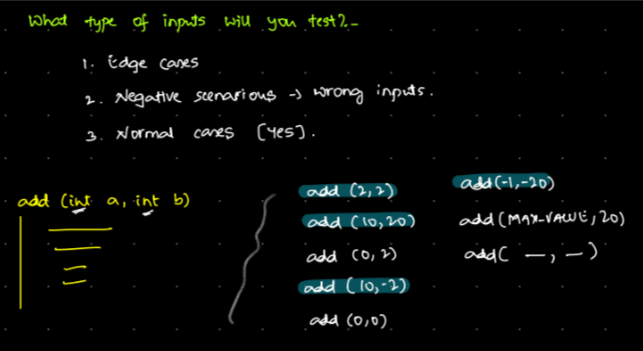 What type of inputs will you test?
1. Edge cases
2. Negative scenarious → wrong inputs.
3. Normal cases [Yes].
add (int a, int b)
add (2,2)
add (10,20)
add (0,2)
add (10,-2)
add (0,0)
add(-1,-20)
add(MAX-VALUE, 20)
add( —, —)